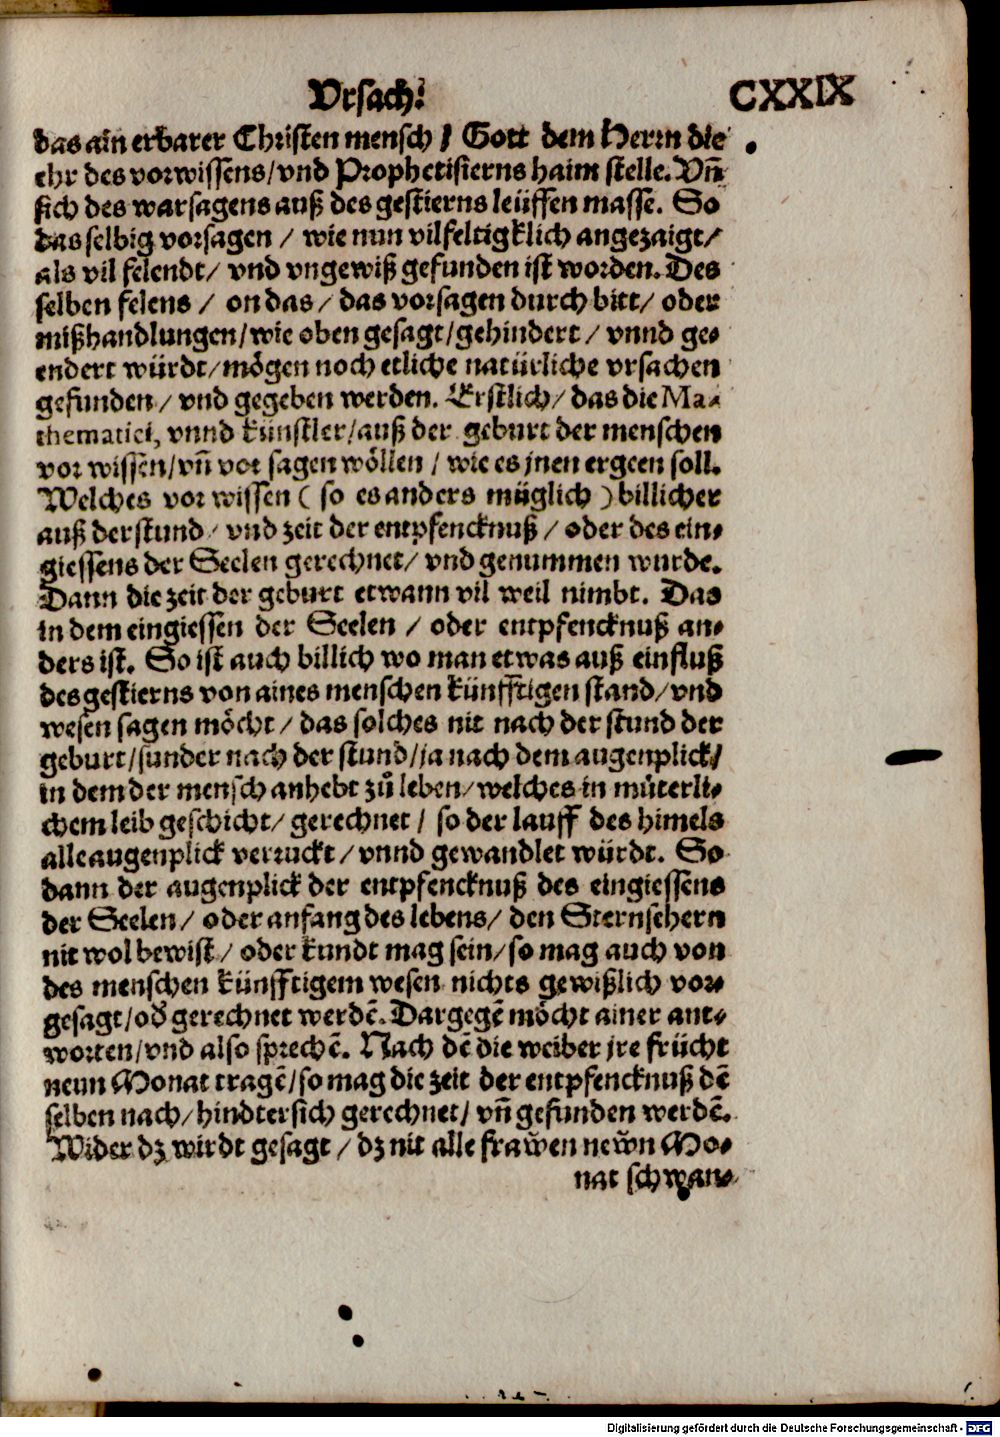 Vrsach. CXXIX
das ain erbarer Christen mensch / Gott dem Herrn die
ehr des vorwissens/vnd Prophetisierns haim stelle. Vn̄
sich des warsagens auß des gestierns leüffen masse. So
das selbig vorsagen / wie nun vilfeltigklich angezaigt/
als vil felendt/ vnd vngewiß gefunden ist worden. Des
selben felens / on das / das vorsagen durch bitt/ oder
mißhandlungen/wie oben gesagt/gehindert / vnnd ge⸗
endert würdt/mögen noch etliche natürliche vrsachen
gefunden / vnd gegeben werden. Erstlich/ das die Ma⸗
thematici, vnnd künstler/auß der geburt der menschen
vor wissen/vn̄ vor sagen wöllen / wie es jnen ergeen soll.
Welches vor wissen ( so es anders müglich ) billicher
auß der stund/ vnd zeit der entpfencknuß / oder des ein⸗
giessens der Seelen gerechnet/ vnd genummen wurde.
Dann die zeit der geburt etwann vil weil nimbt. Das
in dem eingiessen der Seelen / oder entpfencknuß an⸗
ders ist. So ist auch billich wo man etwas auß einfluß
des gestierns von aines menschen künfftigen stand/vnd
wesen sagen möcht / das solches nit nach der stund der
geburt/sunder nach der stund/ja nach dem augenplick/
in dem der mensch anhebt zů leben/welches in můterli⸗
chem leib geschicht/ gerechnet / so der lauff des himels
alle augenplick verruckt / vnnd gewandlet würdt. So
dann der augenplick der entpfencknuß des eingiessens
der Seelen / oder anfang des lebens/ den Sternsehern
nit wol bewist / oder kundt mag sein/so mag auch von
des menschen künfftigem wesen nichts gewißlich vor⸗
gesagt/od̕ gerechnet werdē. Dargegē möcht ainer ant⸗
worten/vnd also sprechē. Nach dē die weiber jre frücht
neun Monat tragē/so mag die zeit der entpfencknuß dē
selben nach/hindtersich gerechnet/ vn̄ gefunden werdē.
Wider dz wirdt gesagt / dz nit alle fraẘen neẘn Mo⸗
nat schwan⸗
Digitalisierung gefördert durch die Deutsche Forschungsgemeinschaft - DFG